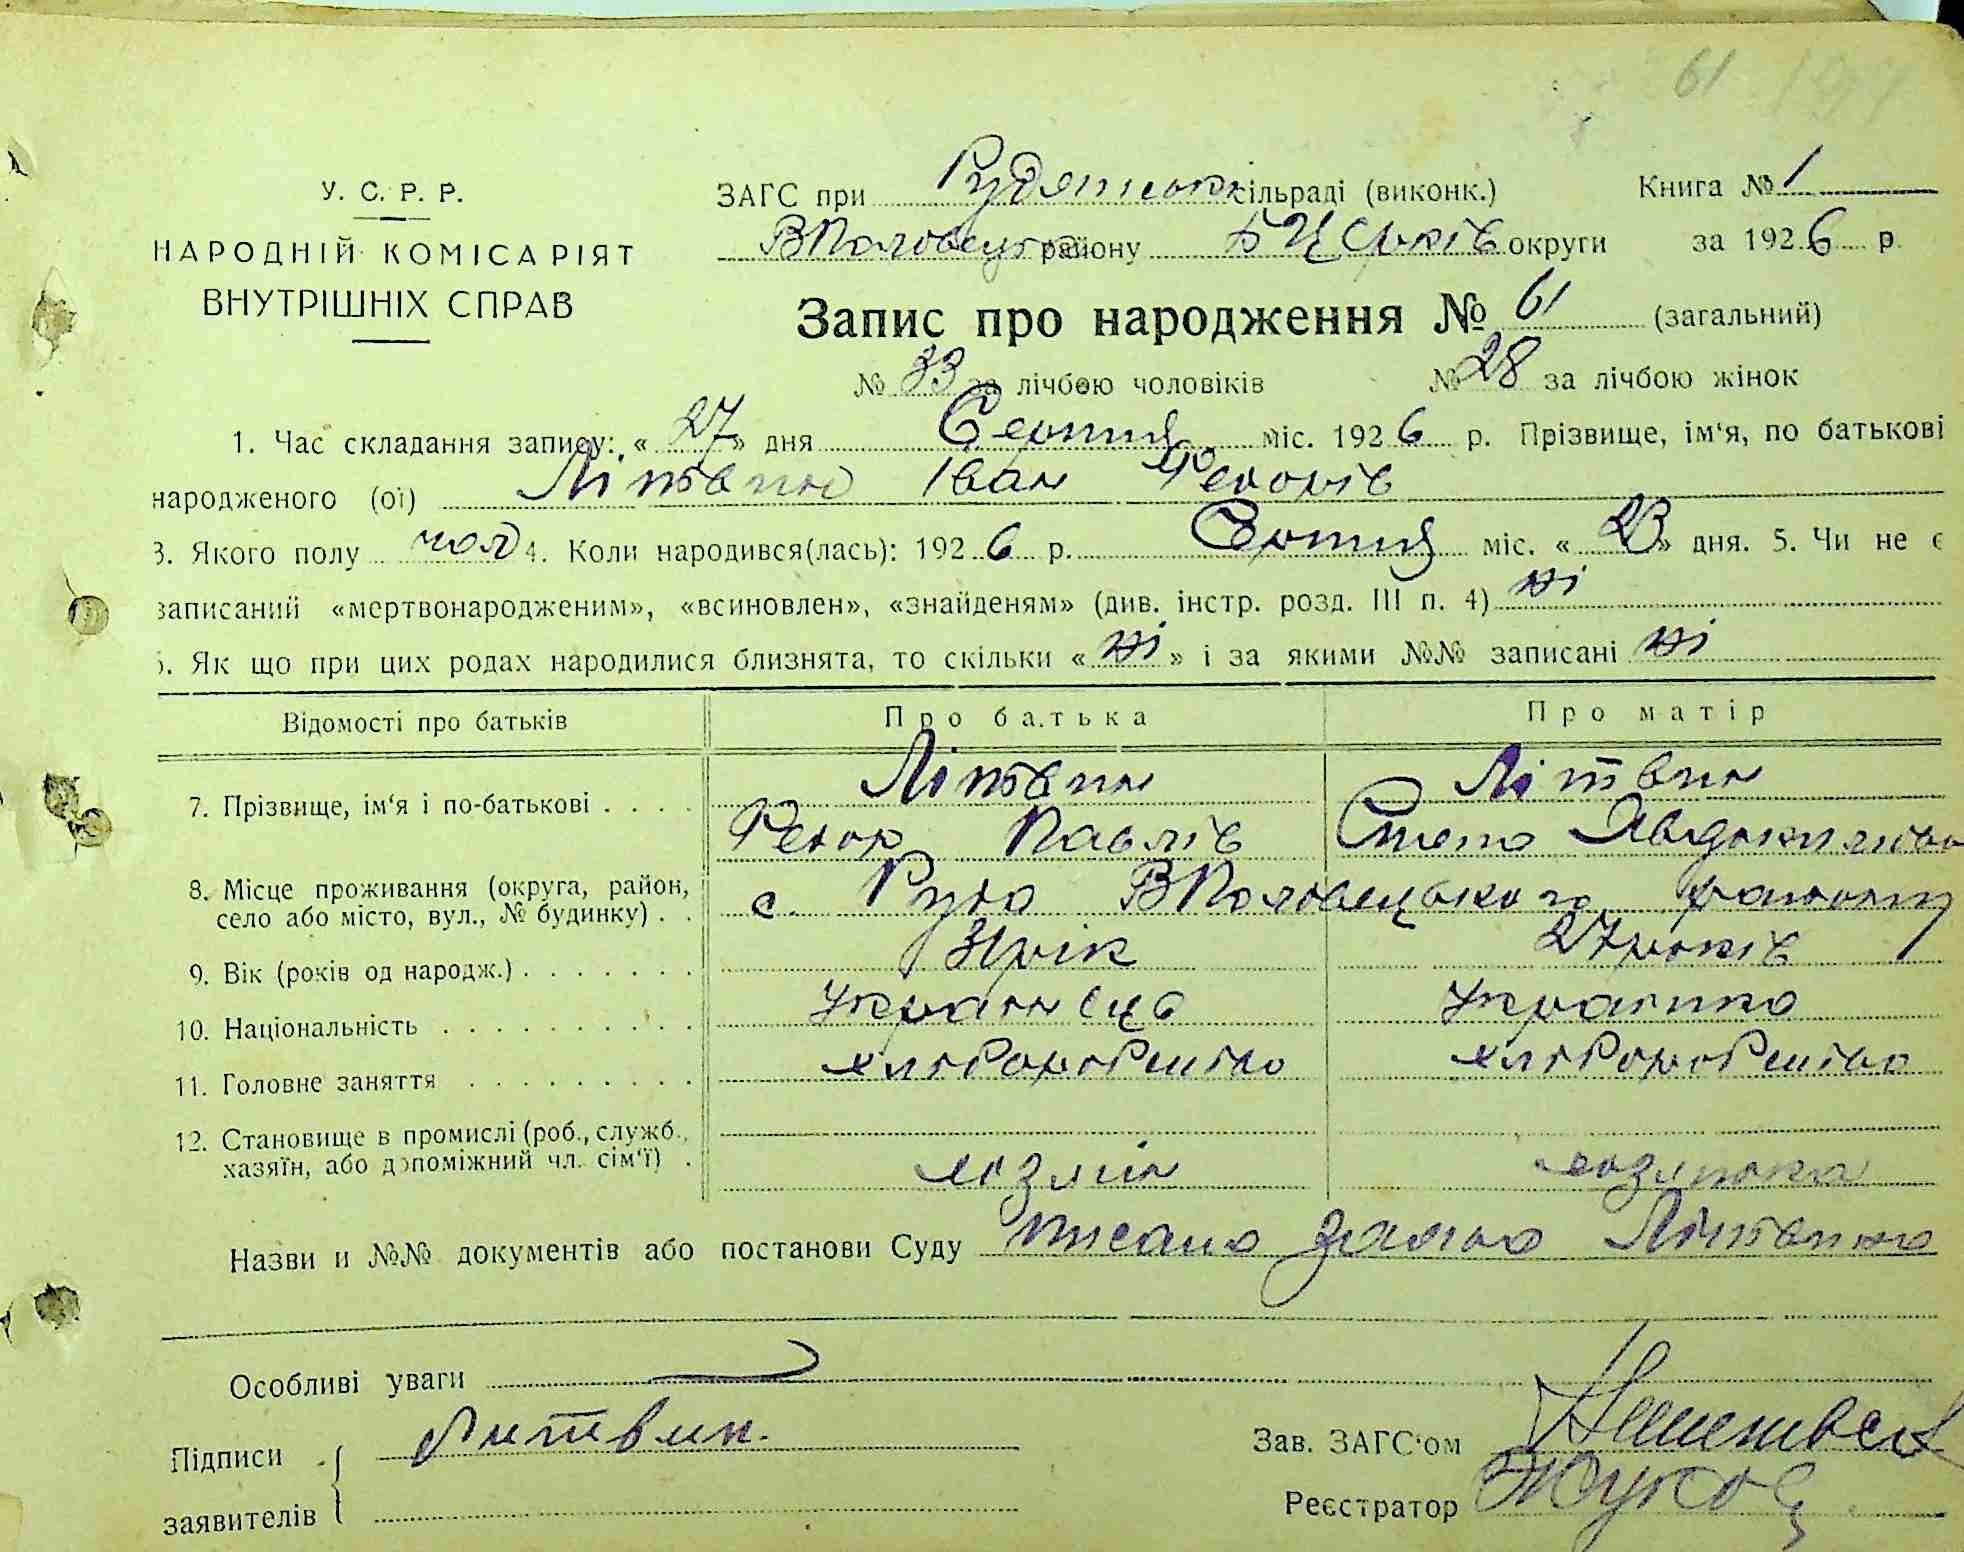 61
У. С. Р. Р.
НАРОДНІЙ КОМІСАРІЯТ
ВНУТРІШНІХ СПРАВ
ЗАГС при Рудянськ сільраді (виконк.) Книга № 1
ВПоловецьк району БЦерків округи за 1926 р.
Запис про народження № 61 (загальний)
№ 33 за лічбою чоловіків № 28 за лічбою жінок
1. Час складання запису: « 27 » дня Серпня міс. 1926 р. Прізвище, ім'я, по батькові
народженого (ої) Літвин Іван Федорів
3. Якого полу чол 4. Коли народився(лась): 1926 р. Серпня міс. « 23 » дня. 5. Чи не є
записаний «мертвонародженим», «всиновлен», «знайденям» (див. інстр. розд. III п. 4) ні
6. Як що при цих родах народилися близнята, то скільки « ні » і за якими №№ записані ні
Відомості про батьків Про батька Про матір
7. Прізвище, ім'я і по-батькові . . . . Літвин Літвин
Федор Павлів Явдокимівна
8. Місце проживання (округа, район,
село або місто, вул., № будинку) . . с. Руда ВПоловецького району
9. Вік (років од народж.) . . . . . . . 31 рік 27 років
10. Національність . . . . . . . . . . Українець Українка
11. Головне заняття . . . . . . . . . хліборобство хліборобство
12. Становище в промислі (роб., служб.,
хазяїн, або допоміжний чл. сім'ї) . хазяїн хазяйка
Назви и №№ документів або постанови Суду Писана заява Літвина
Особливі уваги
Підписи Литвин. Зав. ЗАГС'ом
заявителів Реєстратор